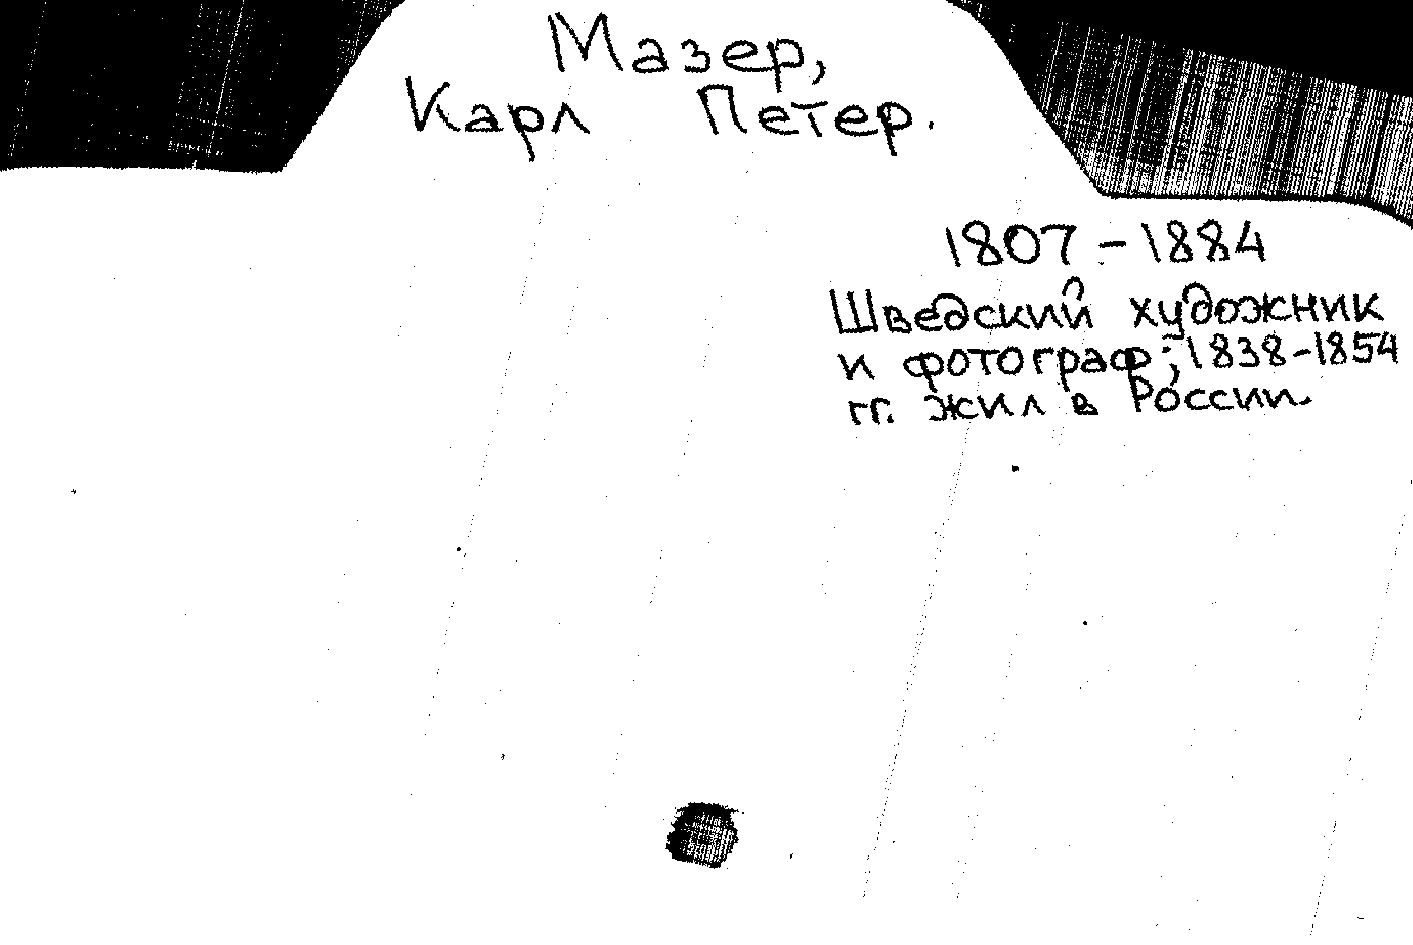 Мазер,
Карл Петер.
1807-1884
Шведский художник
и фотограф; 1838-1854
гг. жил в России.